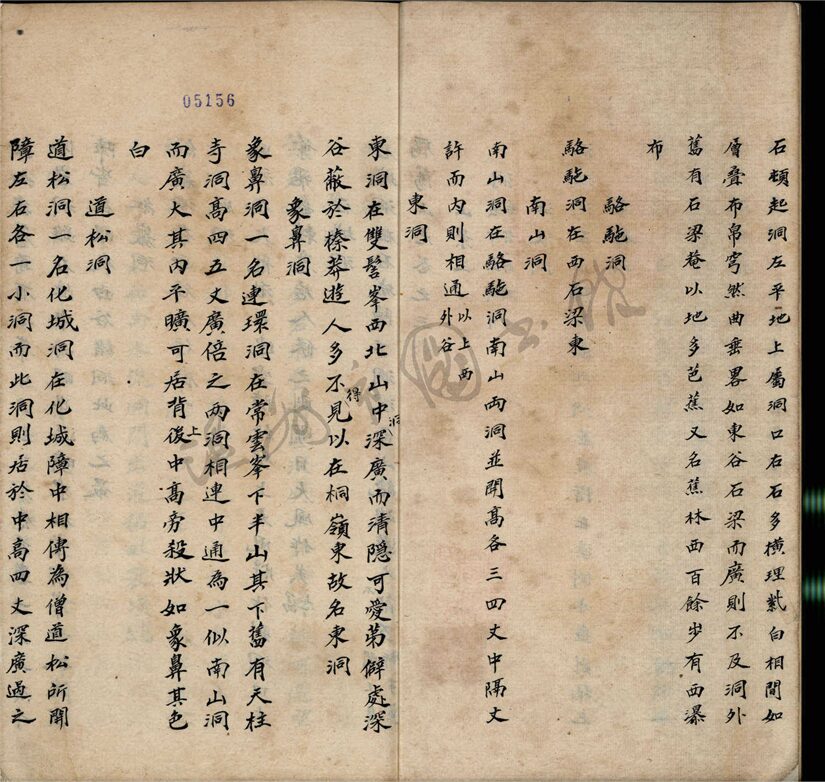 石頓起洞左平地上屬洞口右石多橫理紫白相間如
層叠布帛穹然曲垂畧如東谷石梁而廣則不及洞外
舊有石梁菴以地多芭蕉又名蕉林西百餘步有西瀑
布
駱駝洞
駱駝洞在西石梁東
南山洞
南山洞在駱駝洞南山兩洞並開高各三四丈中隔丈
許而內則相通以上西外谷
東洞
東洞在雙髻峯西北山中洞深廣而清隱可愛苐僻處深
谷蔽於榛莽遊人多不得見以在桐嶺東故名東洞
象鼻洞
象鼻洞一名連環洞在常雲峯下半山其下舊有天柱
寺洞高四五丈廣倍之兩洞相連中通為一似南山洞
而廣大其內平曠可居背後上中高旁殺狀如象鼻其色
白
道松洞
道松洞一名化城洞在化城障中相傳為僧道松所開
障左右各一小洞而此洞則居於中高四丈深廣過之
05156